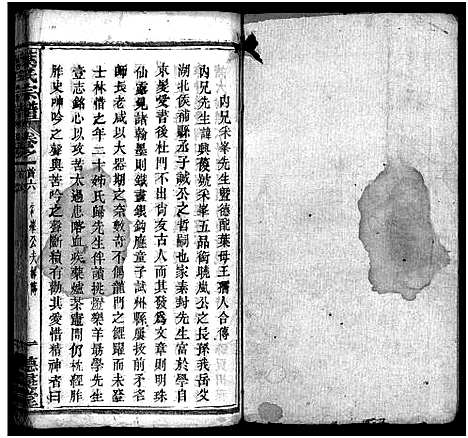 內兄采峯先生暨德配葉母王孺人合傳
內兄先生諱興葭號采峯五品銜曉嵐公之長孫我岳父
湖北候補縣丞子誠公之哲嗣也家素封先生富於學自
束髮受書後杜門不出肯亥古人而其發爲文章則明珠
仙露見諸翰墨則鐵畫銀鉤應童子試州縣屢拔前矛
師長老咸以大器期之奈數奇不偶龍門之鯉躍而未登
士林惜之年二十姊氏歸先生伴讀挑燈樂羊勗學先生
壹志銘心以攻苦太過患喀血疾藥爐茶竈間仍枕經胙
胙史呻吟之聲與苦吟之聲斷續有勸其愛惜精神者曰
氏宗譜
卷之首六